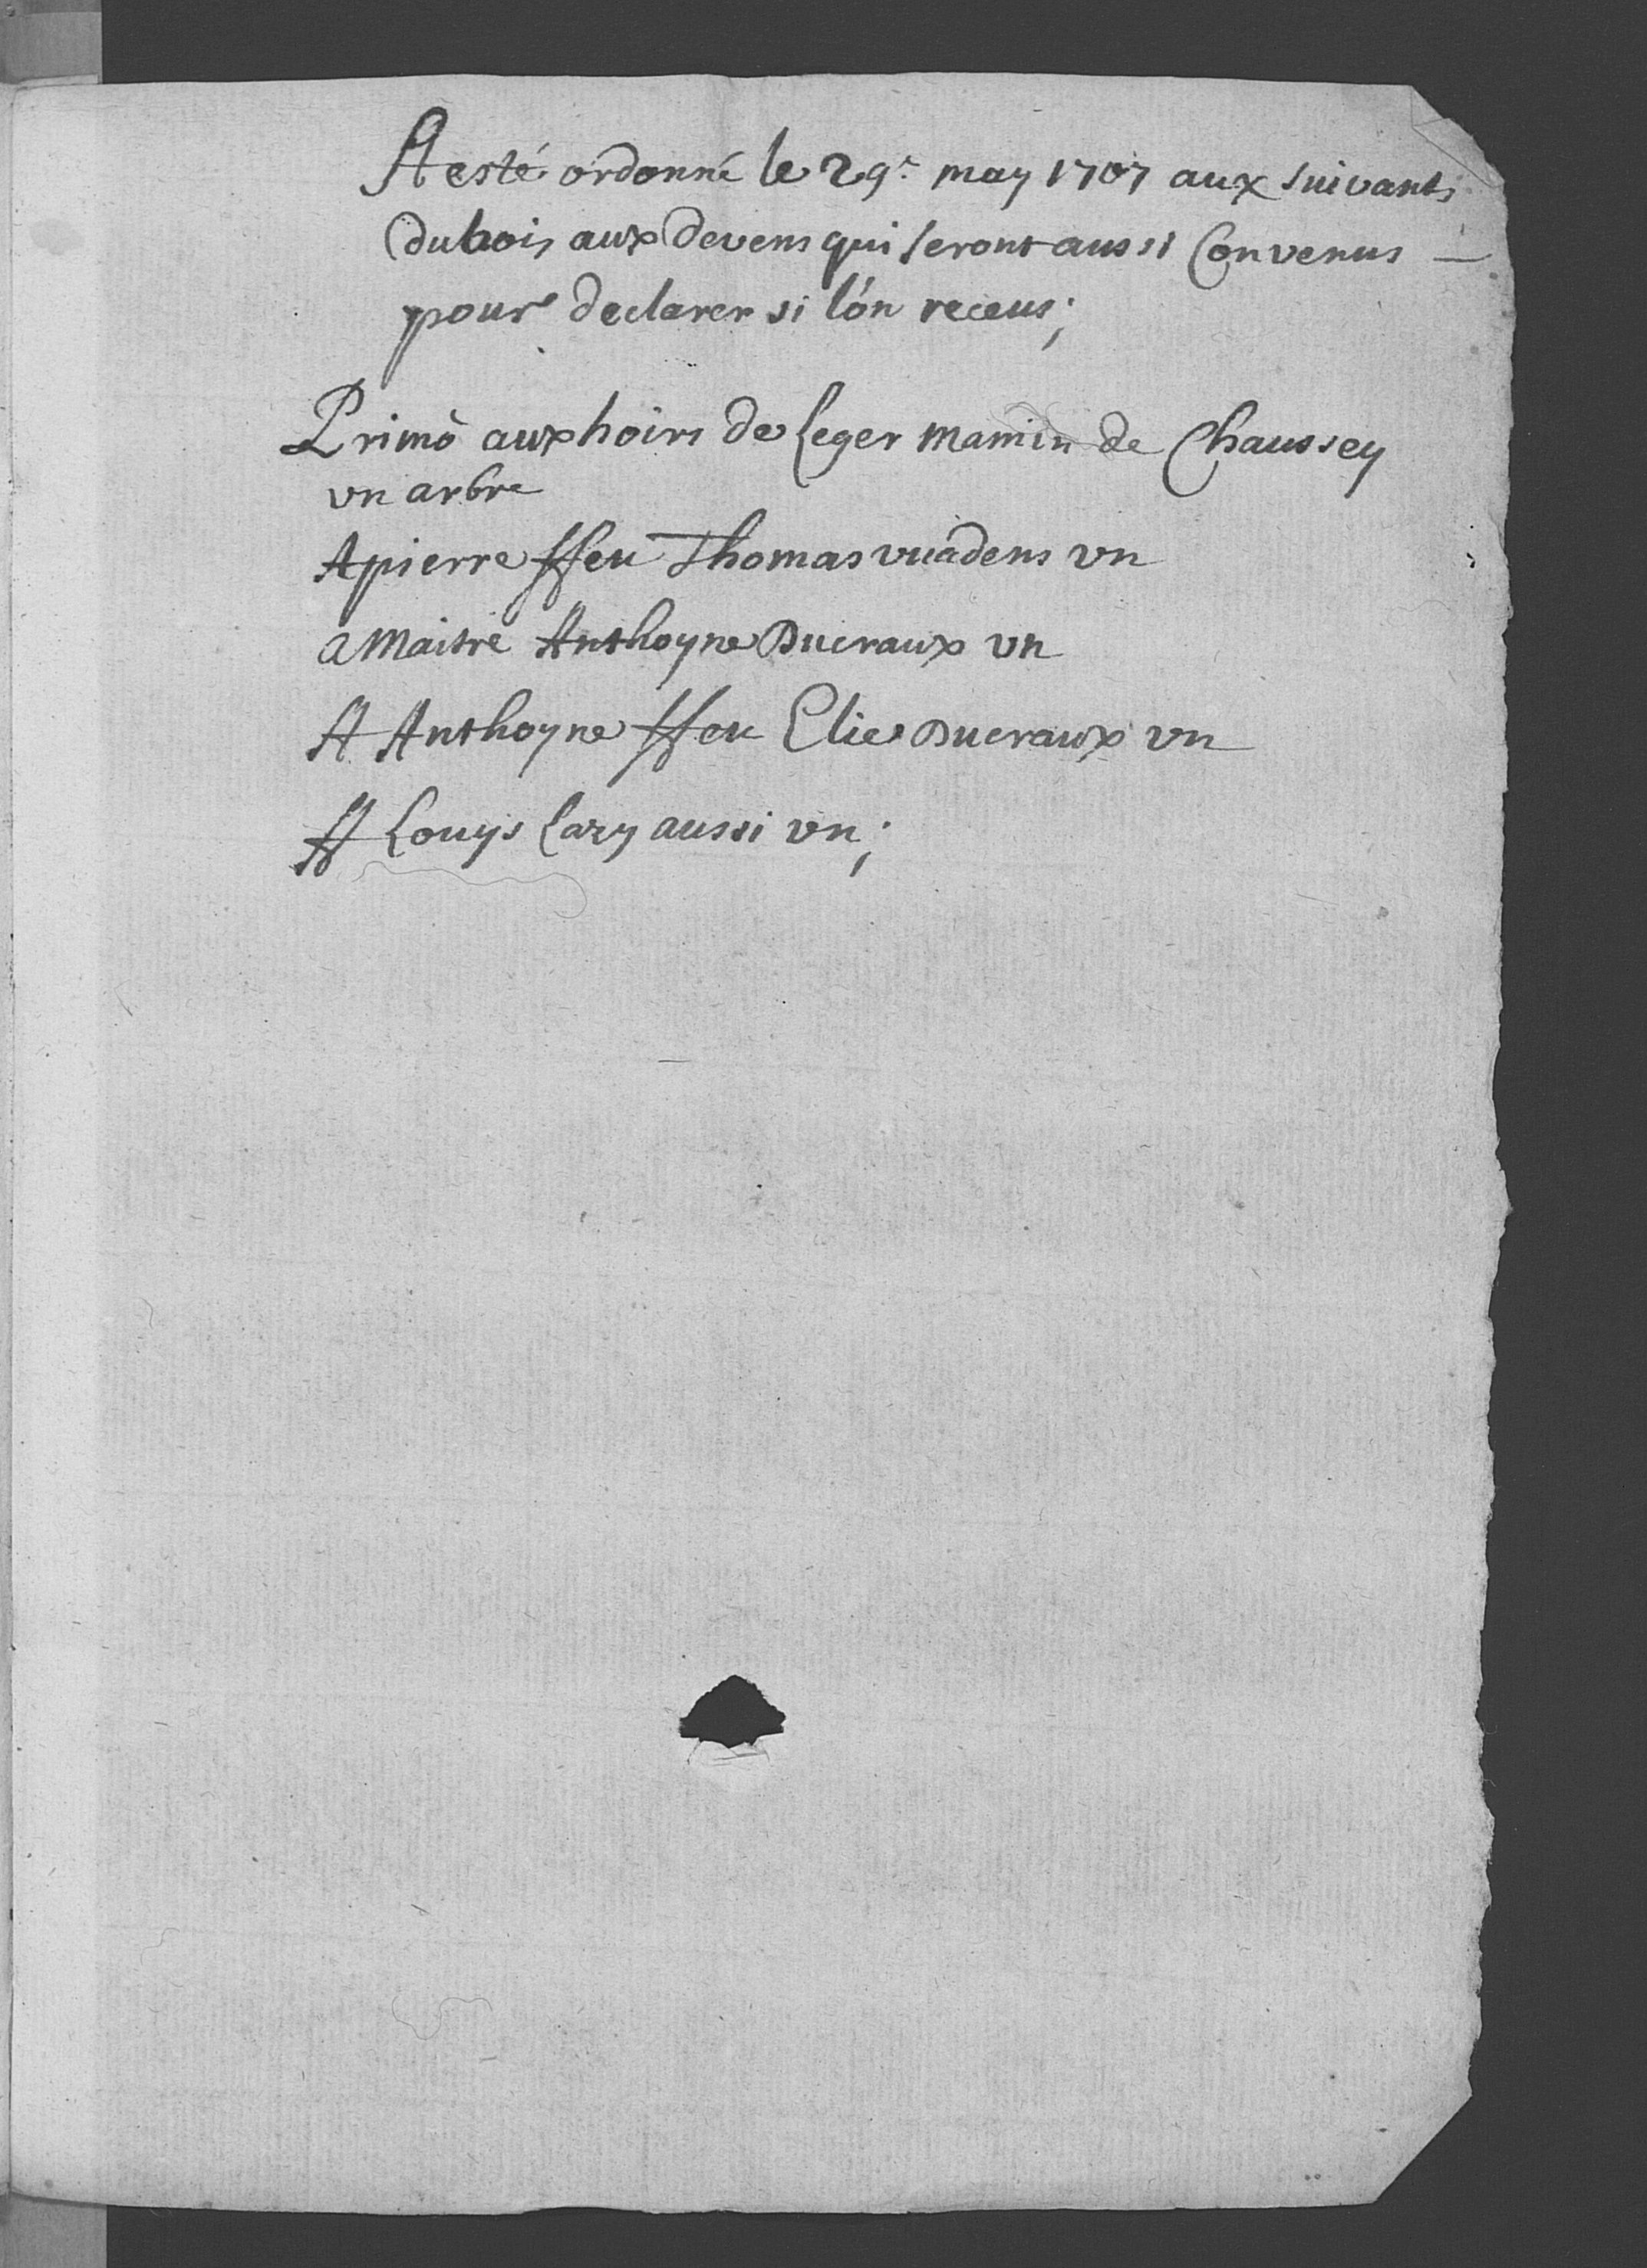 A esté ordonné le 29.e may 1707 aux suivants
du bois aux devens qui seront aussi Convenus —
pour declarer si lón receus;
Primò aux hoirs de Leger Mamin de Chaussey
vn arbre
A pierre ffeu Thomas vuadens vn
a Maitre Anthoyne Ducraux vn
A Anthoyne ffeu Elie Ducraux vn
A Louys Cary aussi vn;